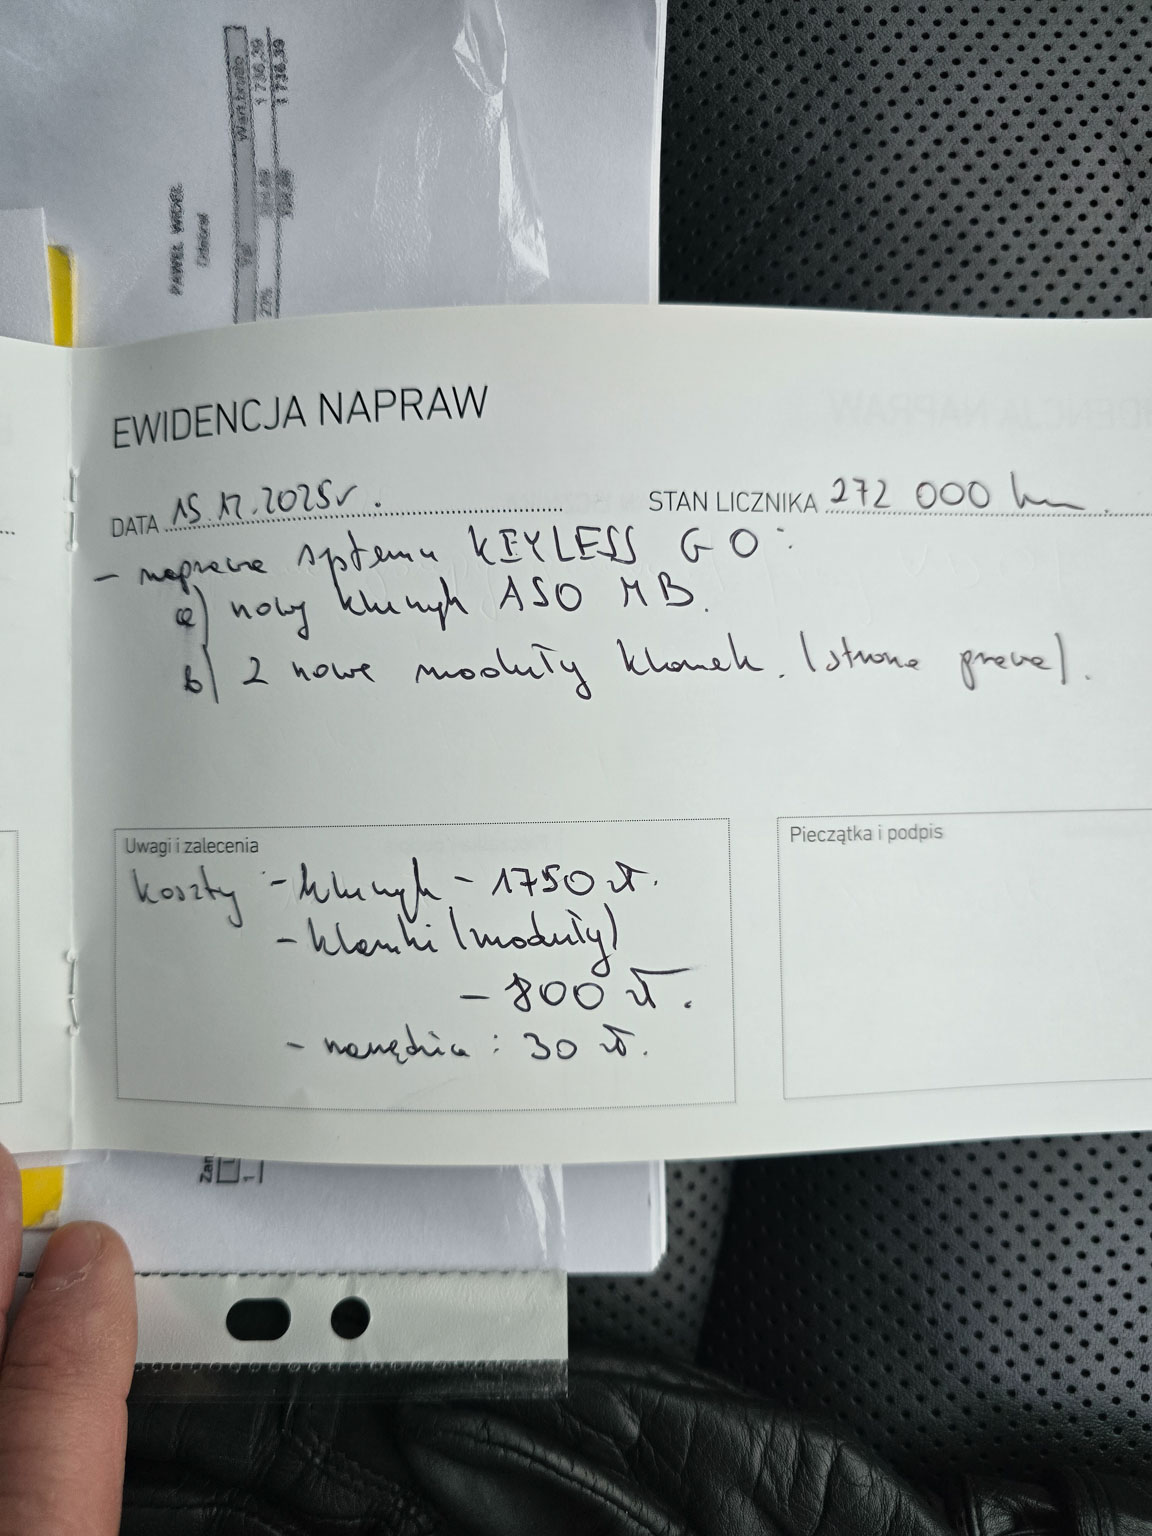 Wart.brutto
1 736.39
1 736.39
PAWEŁ WRÓBEL
Odebrał
EWIDENCJA NAPRAW
DATA 15.12.2025r. STAN LICZNIKA 272 000 km.
- naprawa systemu KEYLESS GO:
a) nowy kluczyk ASO MB.
b) 2 nowe moduły klamek. (strona prawa).
Uwagi i zalecenia
koszty - kluczyk - 1750 zł.
- klamki (moduły)
- 800 zł.
- narzędzia : 30 zł.
Pieczątka i podpis